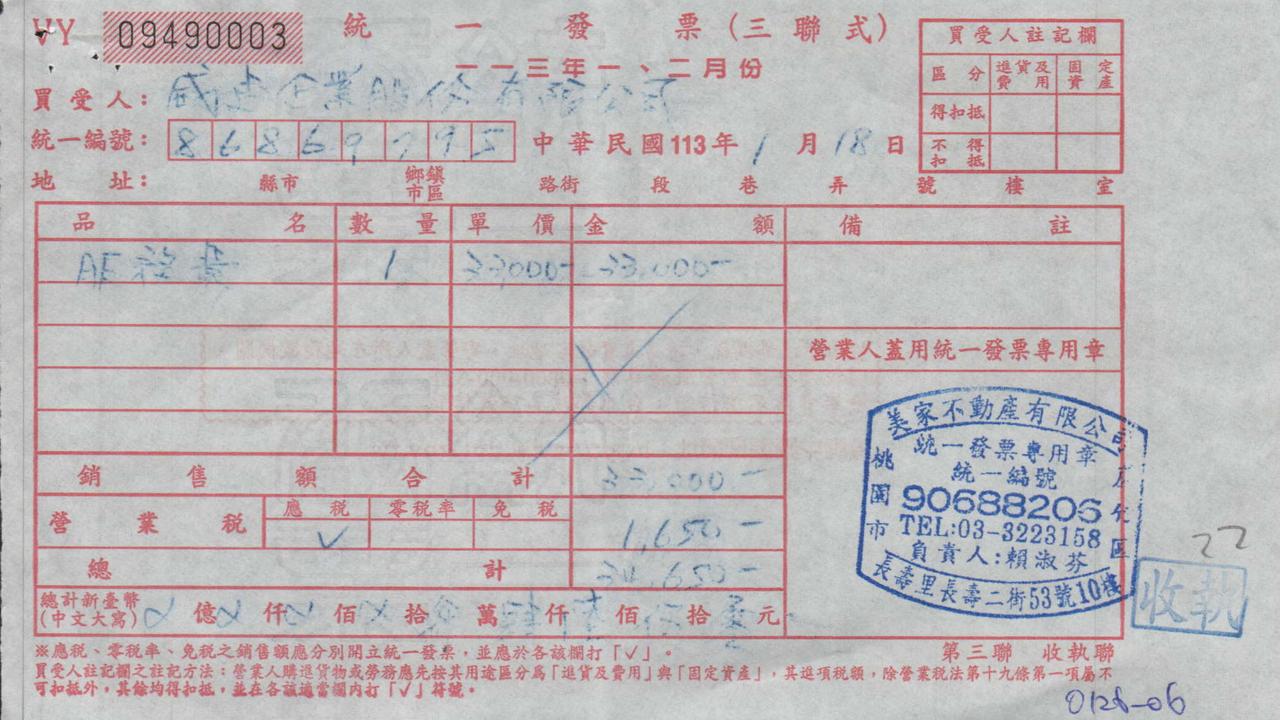 VY 09490003 統一發票(三聯式)
一一三年一、二月份
買受人註記欄
區分 進貨及費用 固定資產
得扣抵
不得扣抵
買受人: 企業股份有限公司
統一編號: 86869795 中華民國113年1月18日
地址: 縣市 鄉鎮市區 路街 段 巷 弄 號 樓 室
品名 數量 單價 金額 備註
AE 1 33000- 33,000-
營業人蓋用統一發票專用章
銷售額合計 33,000-
營業稅 應稅 零稅率 免稅
√ 1,650-
總計 34,650-
總計新臺幣(中文大寫) 億 仟 佰 拾 萬 仟 佰 拾 元
美家不動產有限公司
統一發票專用章
統一編號
90688206
TEL:03-3223158
負責人:賴淑芬
桃園市
長壽里長壽二街53號10樓
22
收執
※應稅、零稅率、免稅之銷售額應分別開立統一發票,並應於各該欄打「√」。
第三聯 收執聯
買受人註記欄之註記方法:營業人購進貨物或勞務應先按其用途區分為「進貨及費用」與「固定資產」,其進項稅額,除營業稅法第十九條第一項屬不
可扣抵外,其餘均得扣抵,並在各該適當欄內打「√」符號。
0126-06